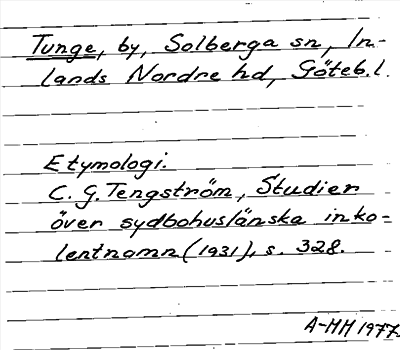 Tunge, by, Solberga sn, In-
lands Nordre hd, Göteb.l.
Etymologi.
C. G. Tengström, Studier
över sydbohuslänska inko=
lentnamn (1931), s. 328.
A-HH 1977.